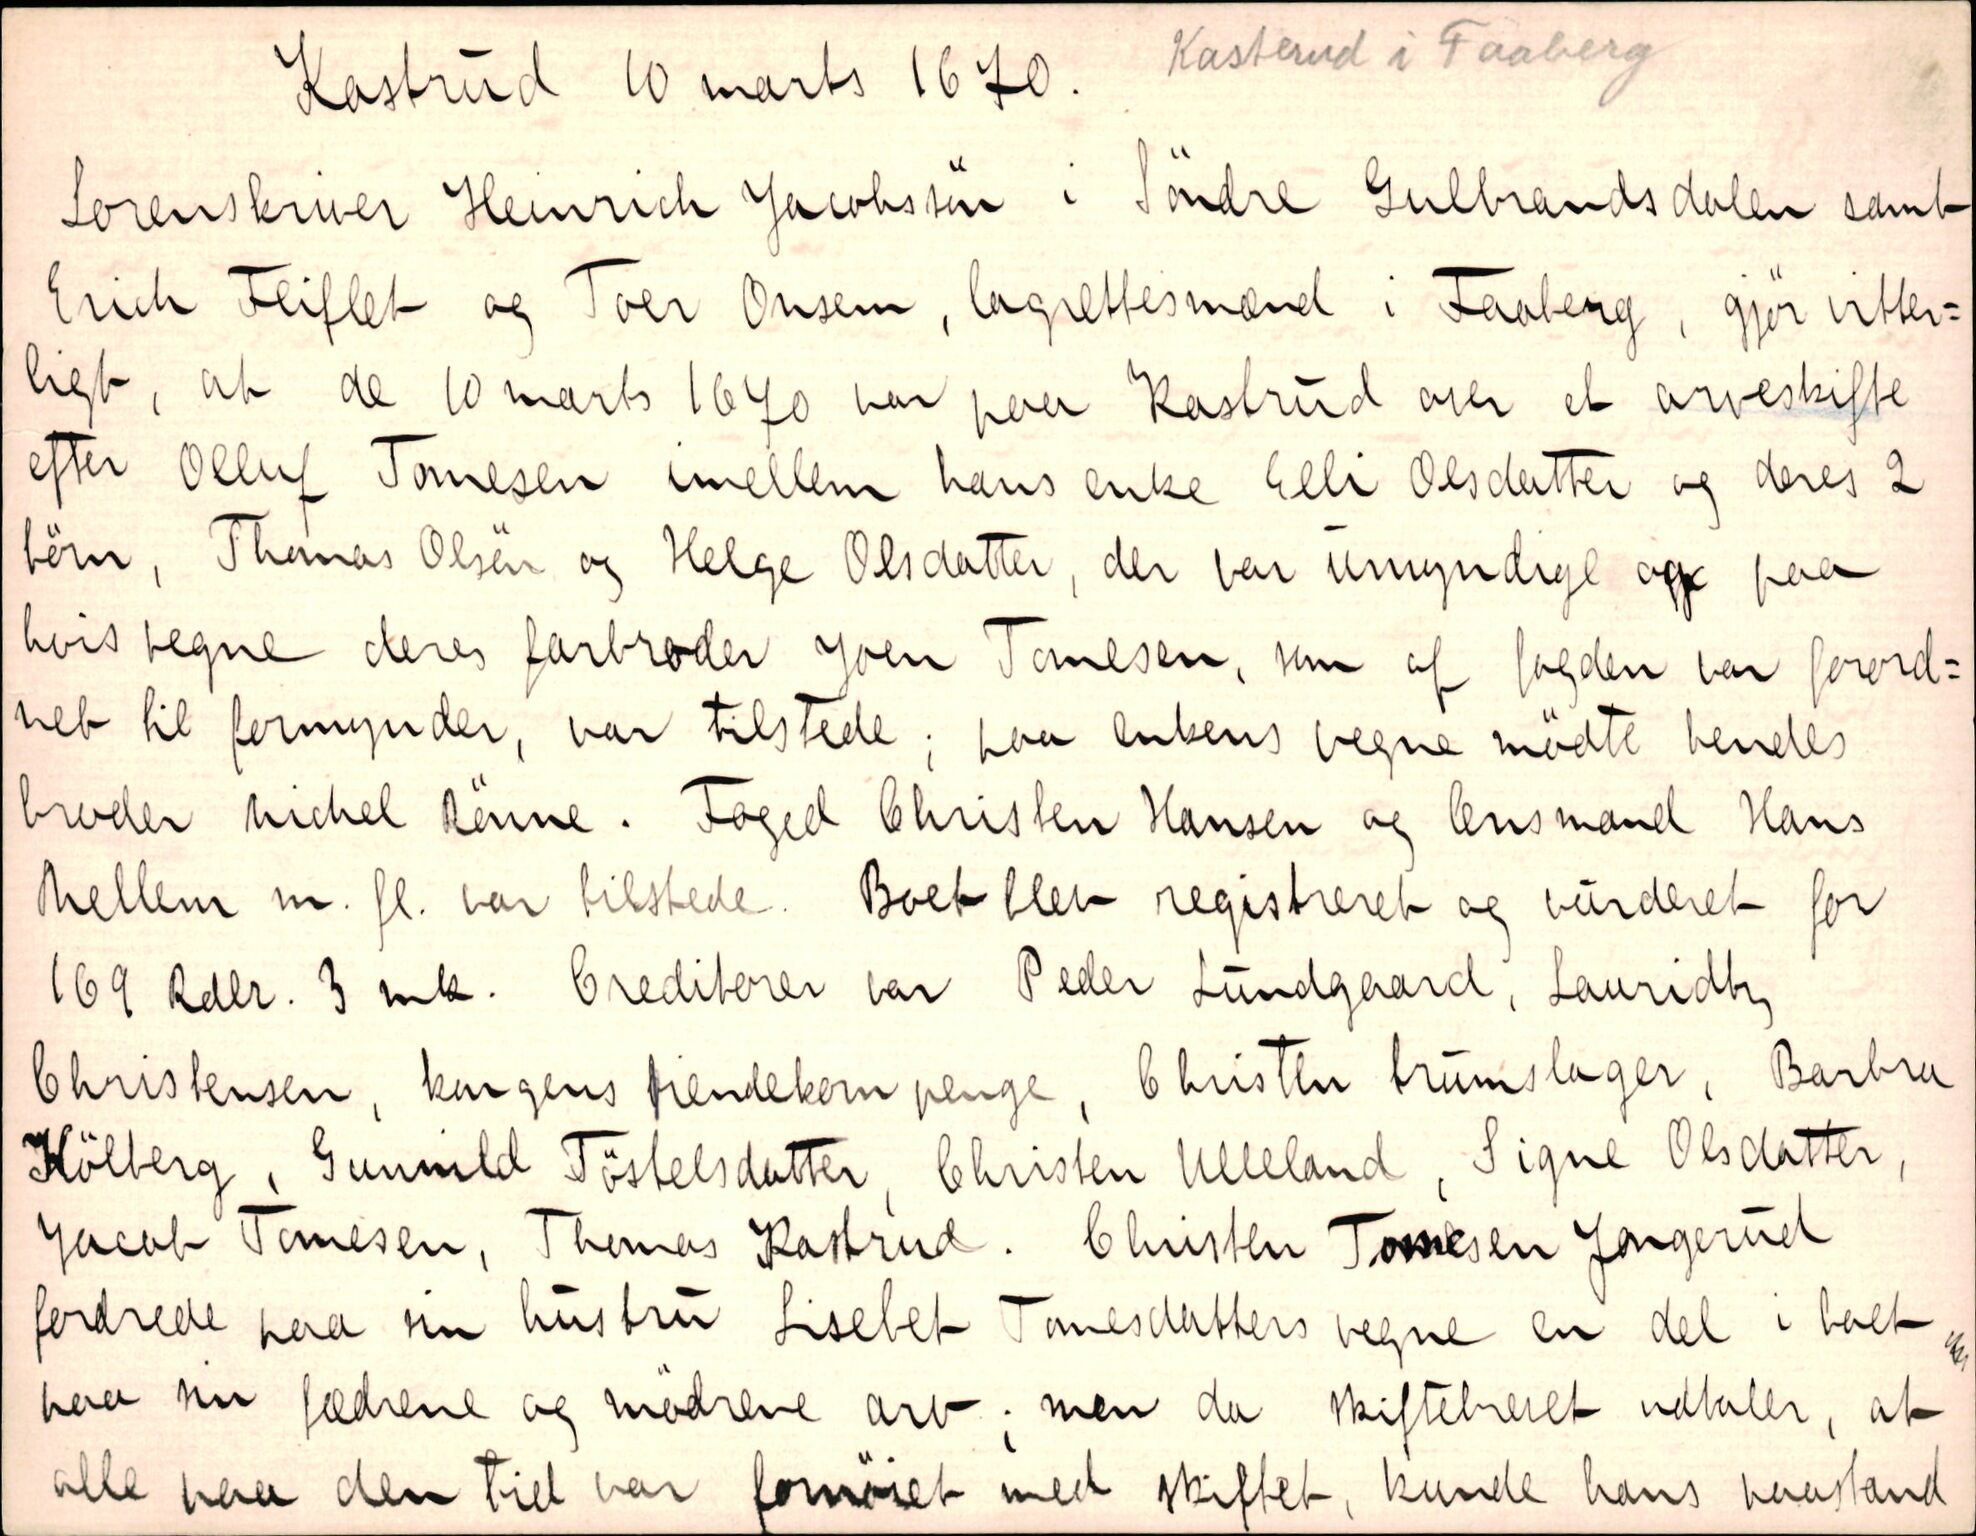 Kastrud 10 marts 1670. Kasterud i Faaberg
Sorenskriver Heinrich Jacobssön i Söndre Gulbrandsdalen samt
Erich Fliflet og Toer Onsem, lagrettesmænd i Faaberg, gjör vitter=
ligt, at de 10 marts 1670 var paa Kastrud over et arveskifte
efter Olluf Tomesen imellem hans enke Elli Olsdatter og deres 2
börn, Thomas Olsön og Helge Olsdatter, der var umyndige og paa
hvis vegne deres farbroder Joen Tomesen, som af fogden var forord=
net til formynder, var tilstede; paa enkens vegne mödte hendes
broder Michel Rönne. Foged Christen Hansen og lensmand Hans
Mellem m. fl. var tilstede. Boet blev registreret og vurderet for
169 Rdlr. 3 mk. Creditorer var Peder Lundgaard, Lauridtz
Christensen, kongens tiendekorn penge, Christen trumslager, Barbra
Kölberg, Gunnild Töstelsdatter, Christen Ulleland, Signe Olsdatter,
Jacob Tomesen, Thomas Kastrud. Christen Tomesen Jongerud
fordrede paa sin hustru Lisebet Tomesdatters vegne en del i boet
paa sin fædrene og mödrene arv; men da skiftebrevet udtaler, at
alle paa den tid var fornöiet med skiftet, kunde hans paastand